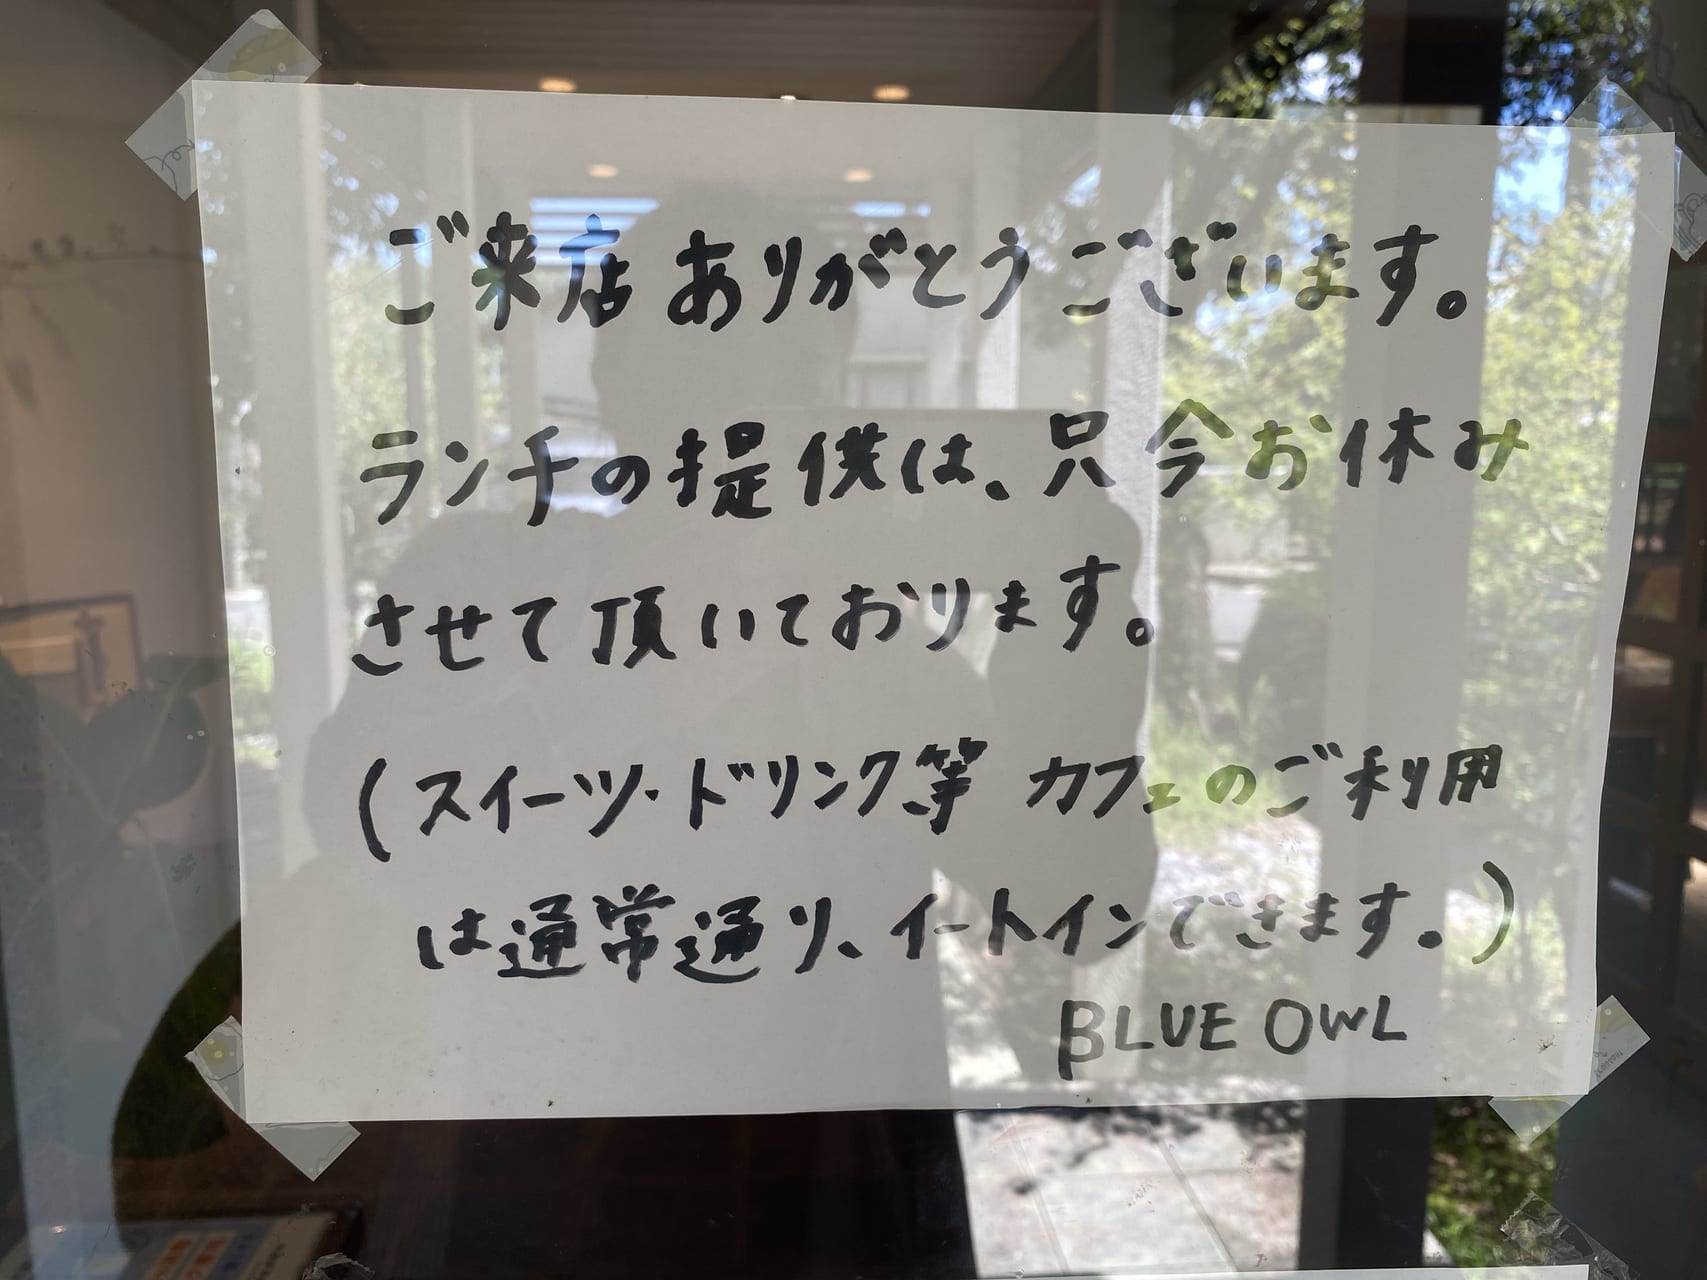 ご来店ありがとうございます。
ランチの提供は、只今お休み
させて頂いております。
(スイーツ・ドリンク等 カフェのご利用
は通常通り、イートインできます。)
BLUE OWL